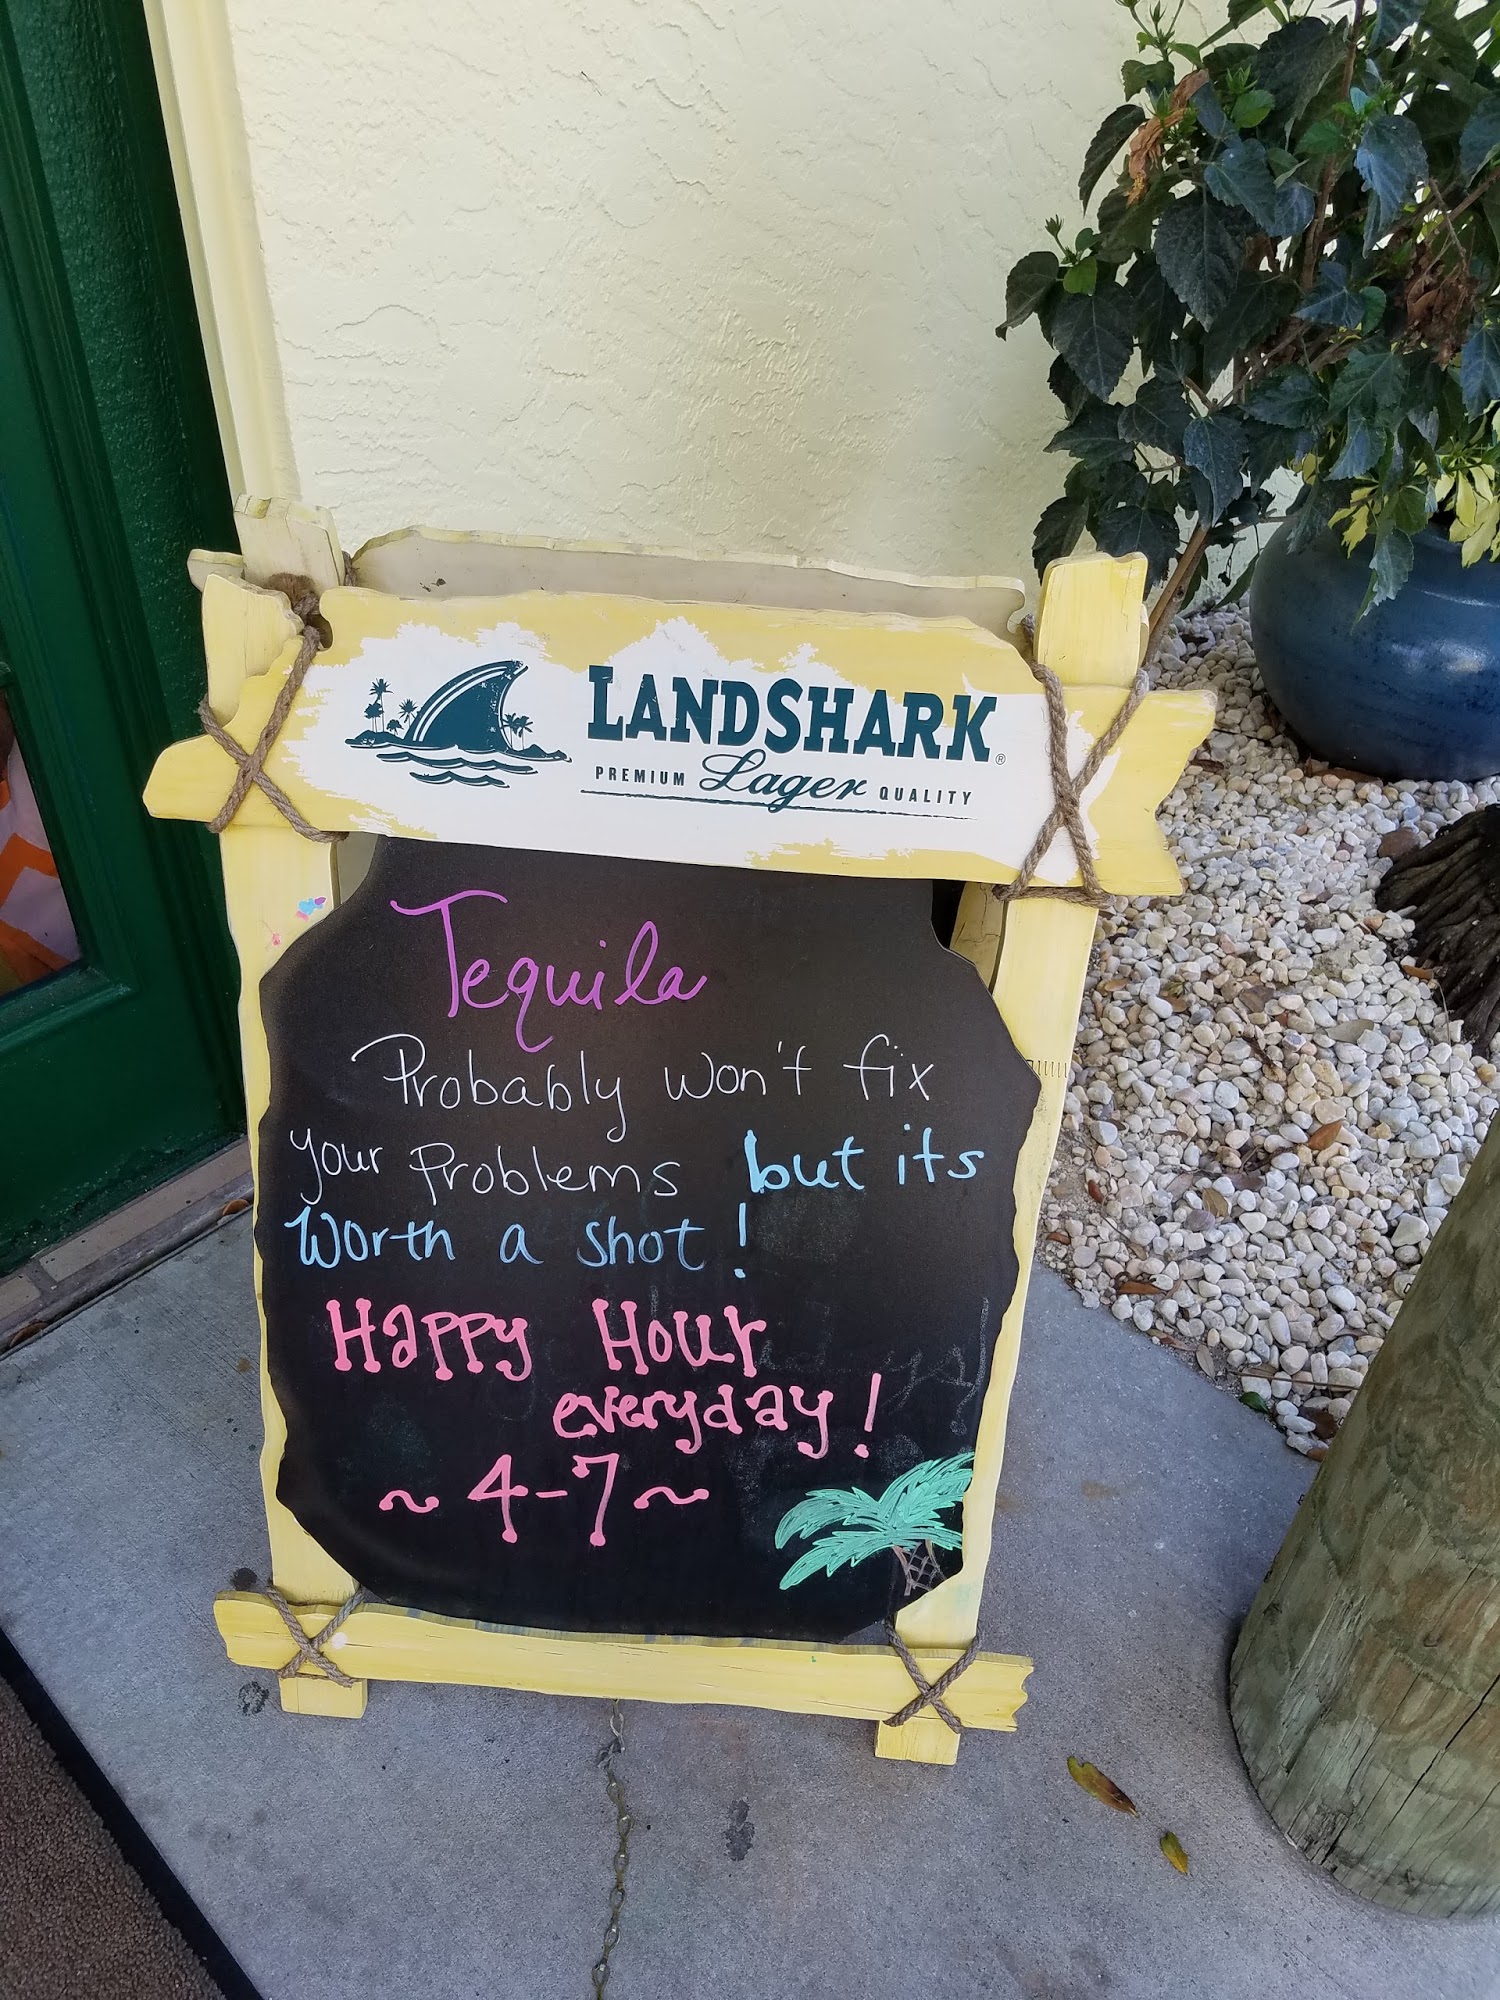 LANDSHARK®
PREMIUM Lager QUALITY
Tequila
Probably won't fix
your Problems but its
Worth a shot!
Happy Hour
everyday!
~ 4-7 ~